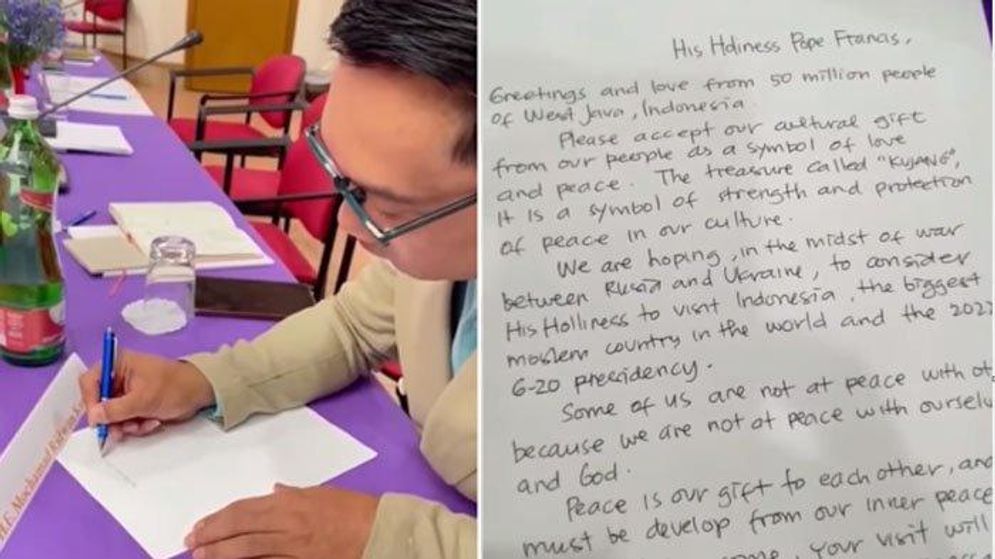 H.E. Mochamad Ridwan K
His Holiness Pope Francis,
Greetings and love from 50 million people
of West Java, Indonesia
Please accept our cultural gift
from our people as a symbol of love
and peace. The treasure called "KUJANG",
It is a symbol of strength and protection
of peace in our culture.
We are hoping, in the midst of war
between Rusia and Ukraine, to consider
His Holliness to visit Indonesia, the biggest
moslem country in the world and the 2022
G-20 presidency.
Some of us are not at peace with ot
because we are not at peace with ourselv
and God.
Peace is our gift to each other, and
must be develop from our inner peace
your visit will